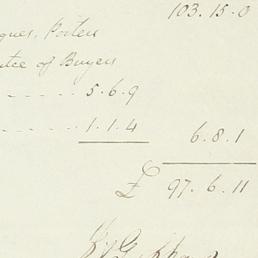 103. 15. 0
Porters
of Buyers
5. 6. 9
1. 1. 4 6. 8. 1
£ 97. 6. 11